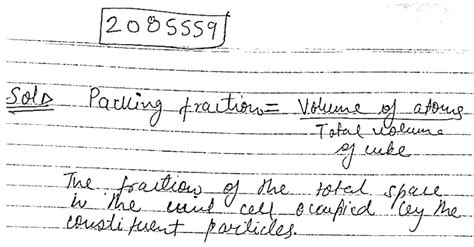 2085559
Sol▷ Packing fraction = Volume of atoms
Total volume
of cube
The fraction of the total space
in the unit cell occupied by the
constituent particles.